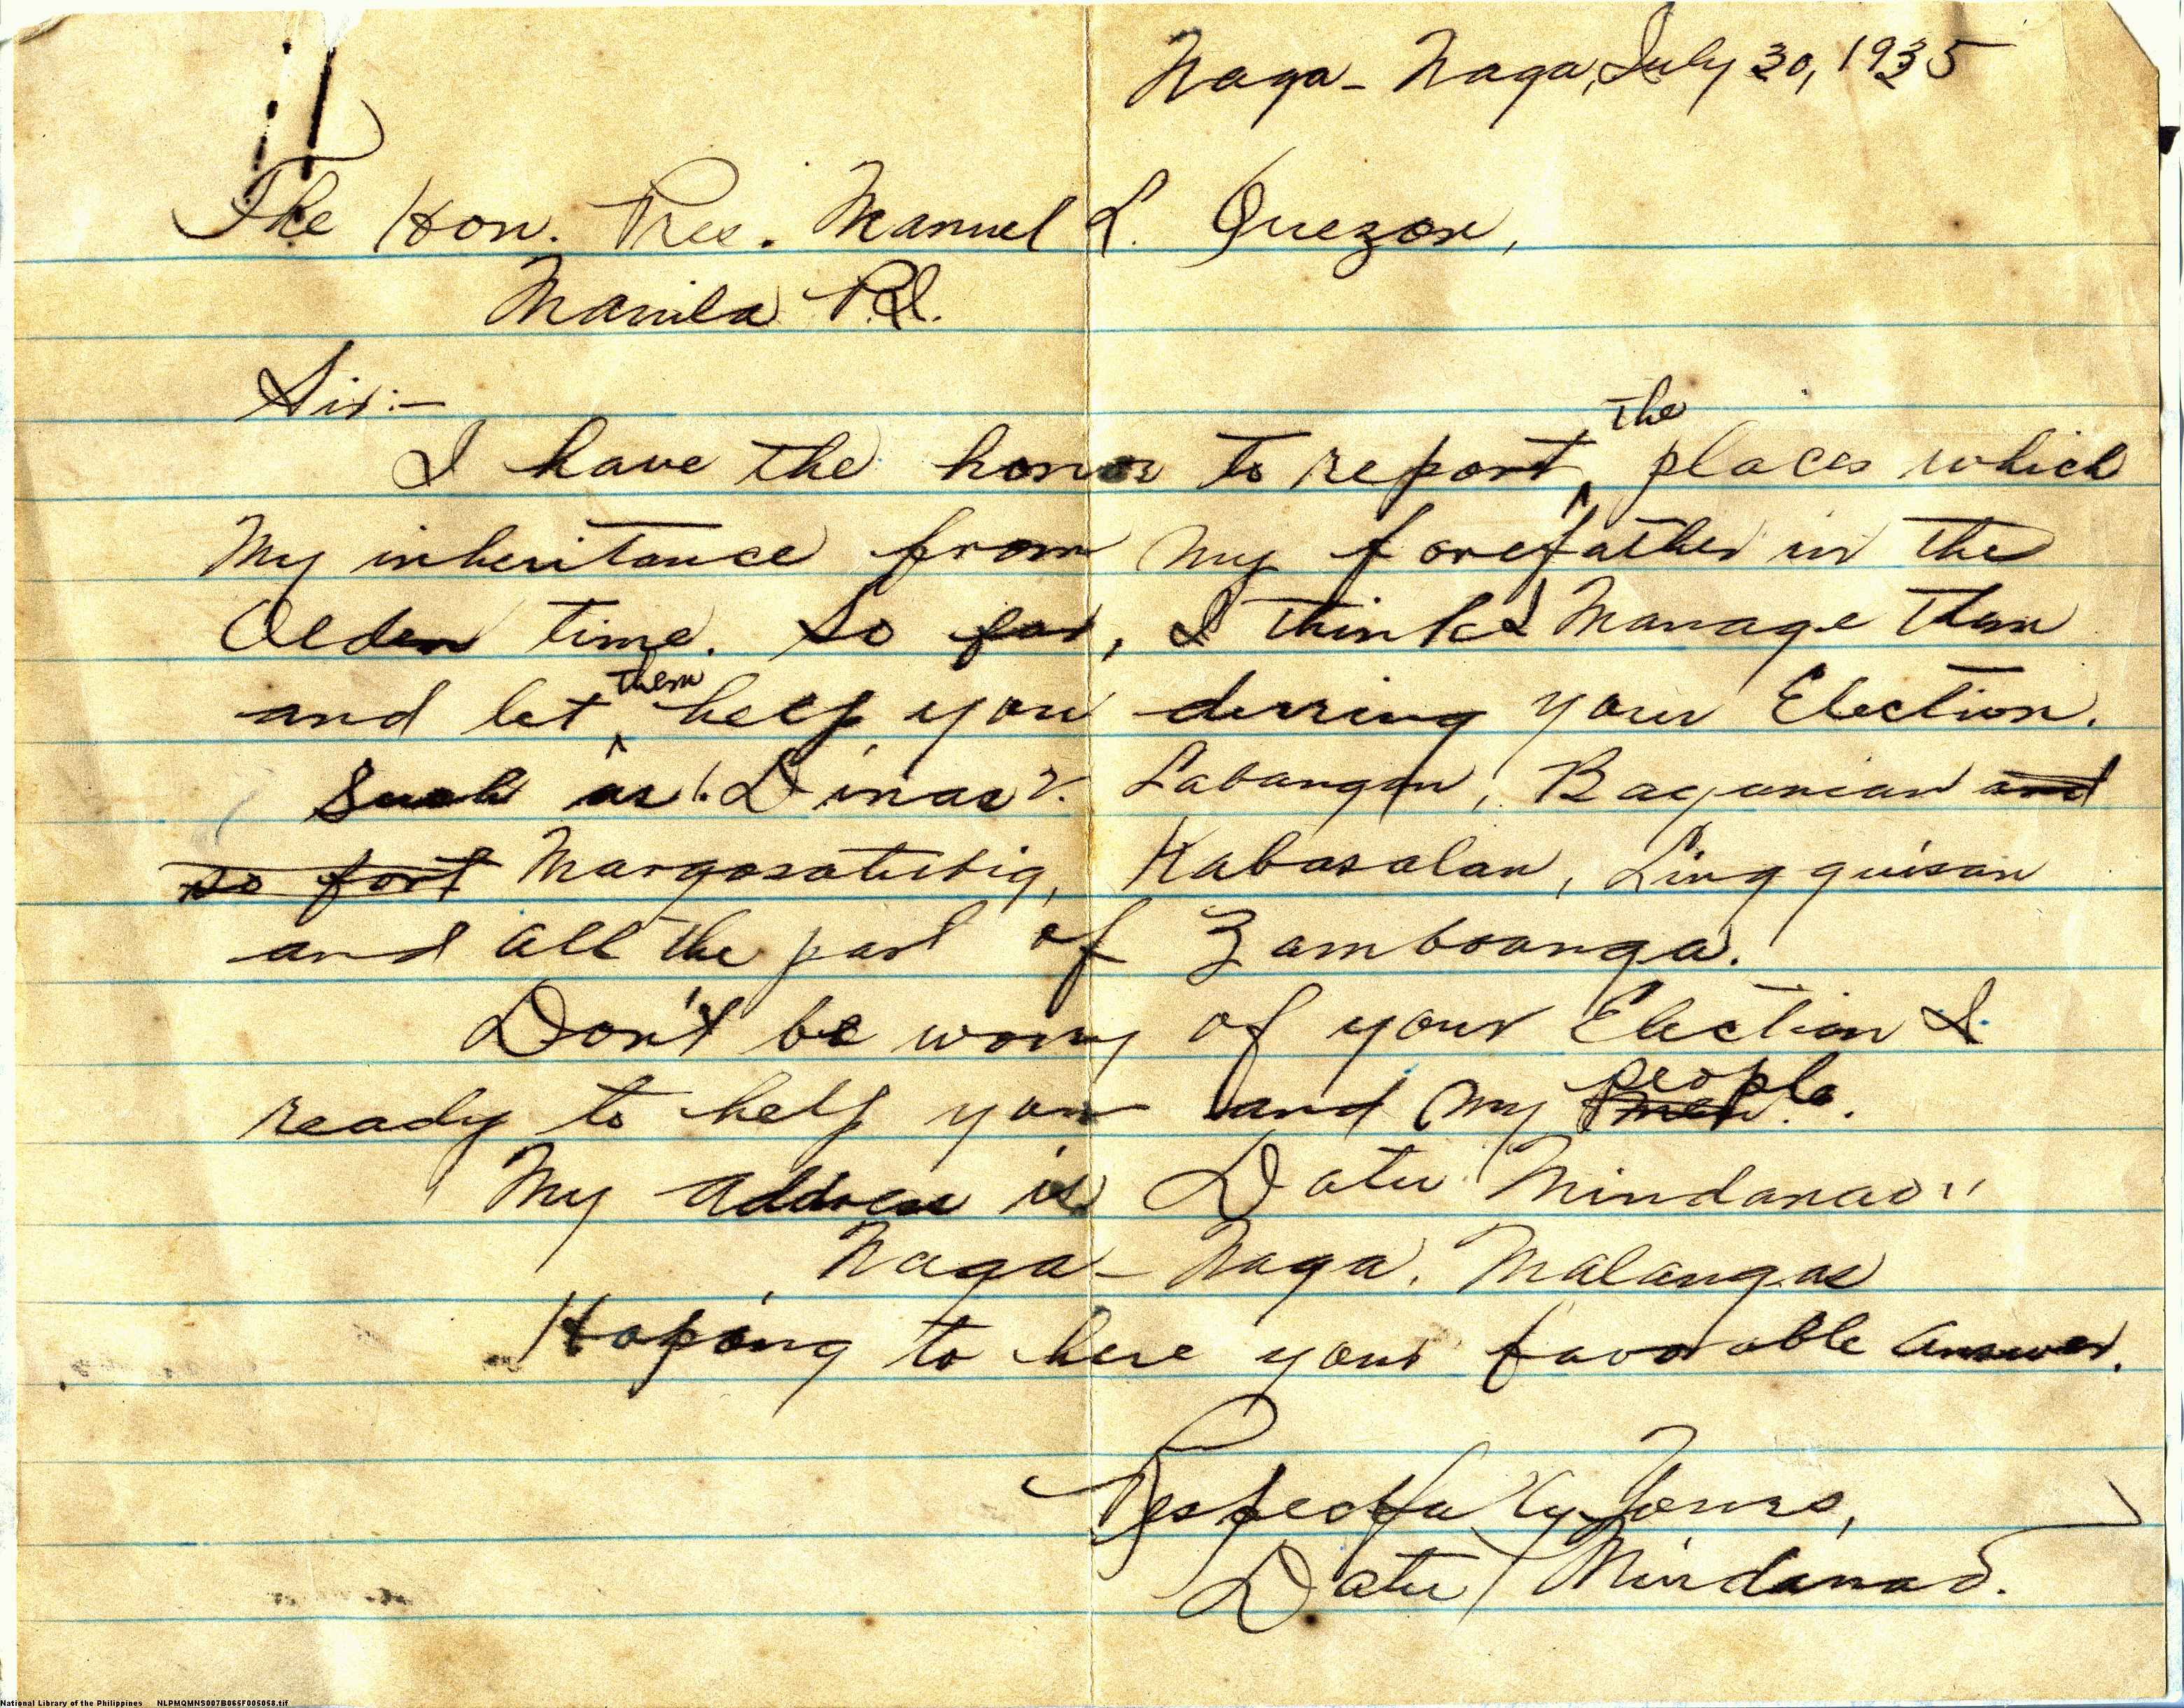 Naga-Naga, July 30, 1935
The Hon. Pres. Manuel L. Quezon,
Manila P.I.
Sir:-
I have the honor to report the places which
My inheritance from my forefather in the
Olden time. So far, I think I Manage them
and let them help you durring your Election.
Such as 1. Dinas 2. Labangan, Baganian and
so fort Margosatubig, Kabasalan, Lingquisan
and all the part of Zamboanga.
Don't be worry of your Election I
ready to help you and my people.
My address is Datu Mindanao"
Naga-Naga, Malangas
Hoping to here your favorable answer.
Respectfully Yours,
Datu Mindanao.
National Library of the Philippines NLPMQMNS007B065F005058.tif